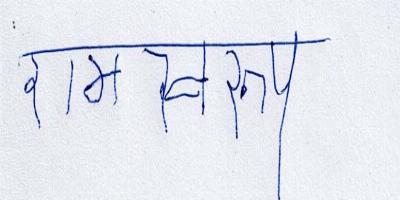 राम स्वरूप